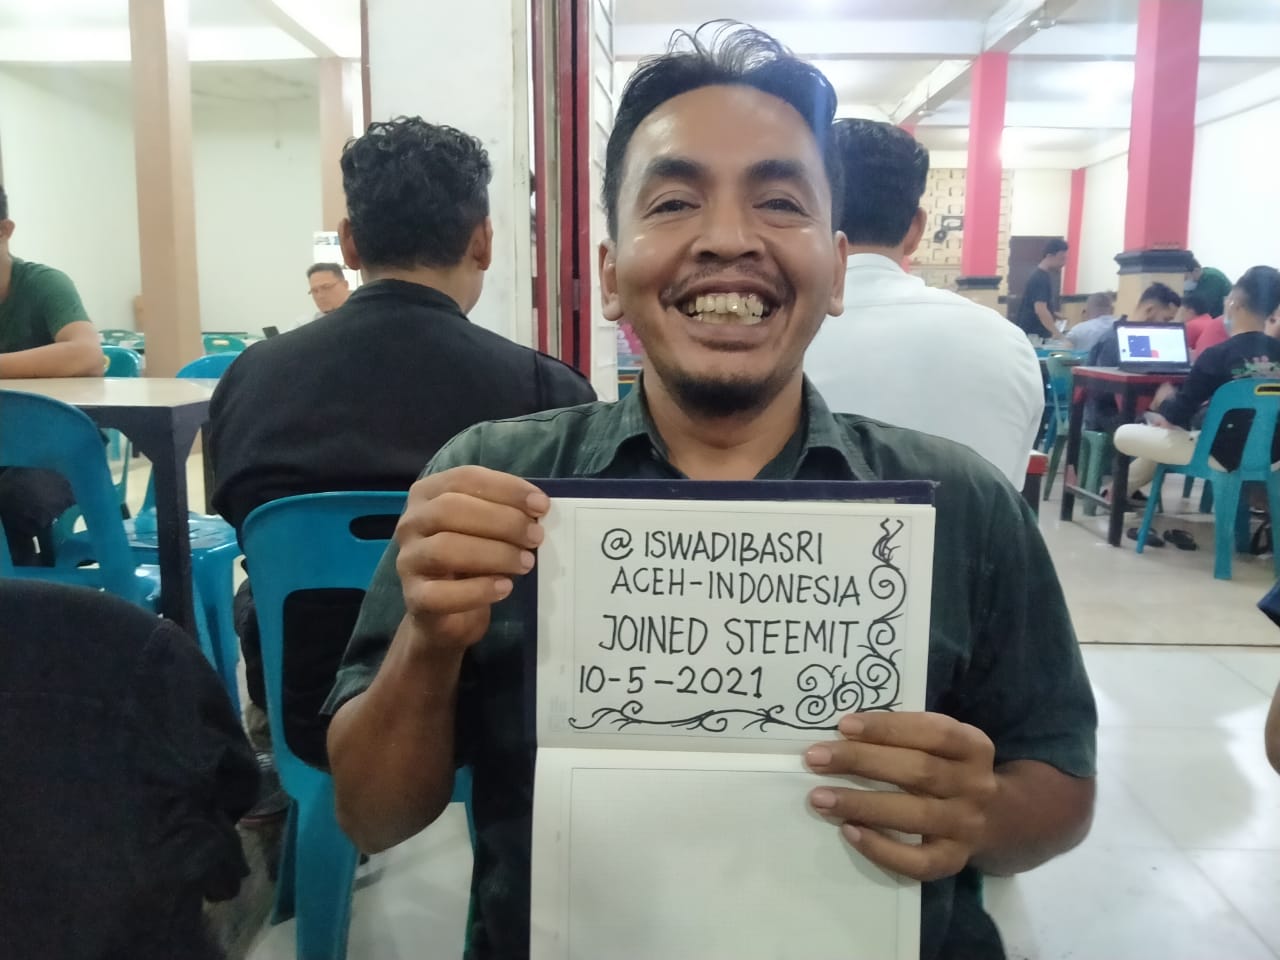 @ ISWADIBASRI
ACEH-INDONESIA
JOINED STEEMIT
10-5-2021